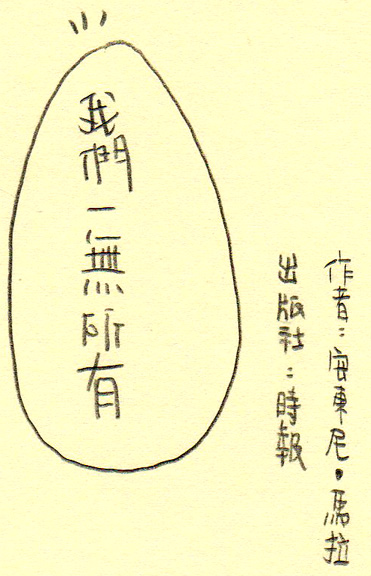 我們一無所有
作者：安東尼・馬拉
出版社：時報